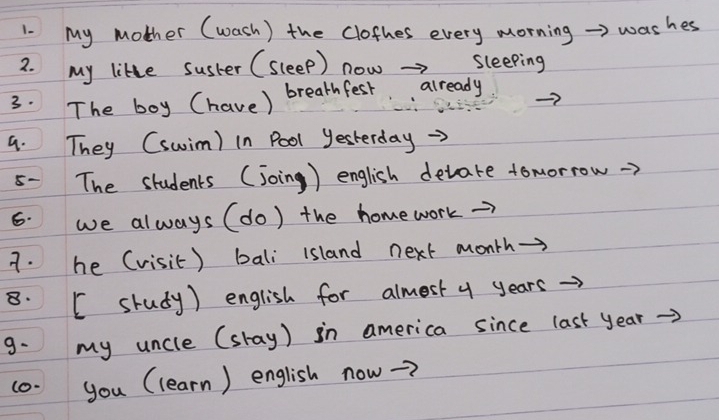 1- My mother (wash) the clothes every morning → washes
2. My little suster (sleep) now → sleeping
3. The boy (have) breathfest already →
4. They (swim) in pool yesterday →
5- The students (joing) english debate tomorrow →
6. we always (do) the homework →
7. he (visit) bali island next month →
8. [ study) english for almost 4 years →
9- my uncle (stay) in america since last year →
10- you (learn) english now →